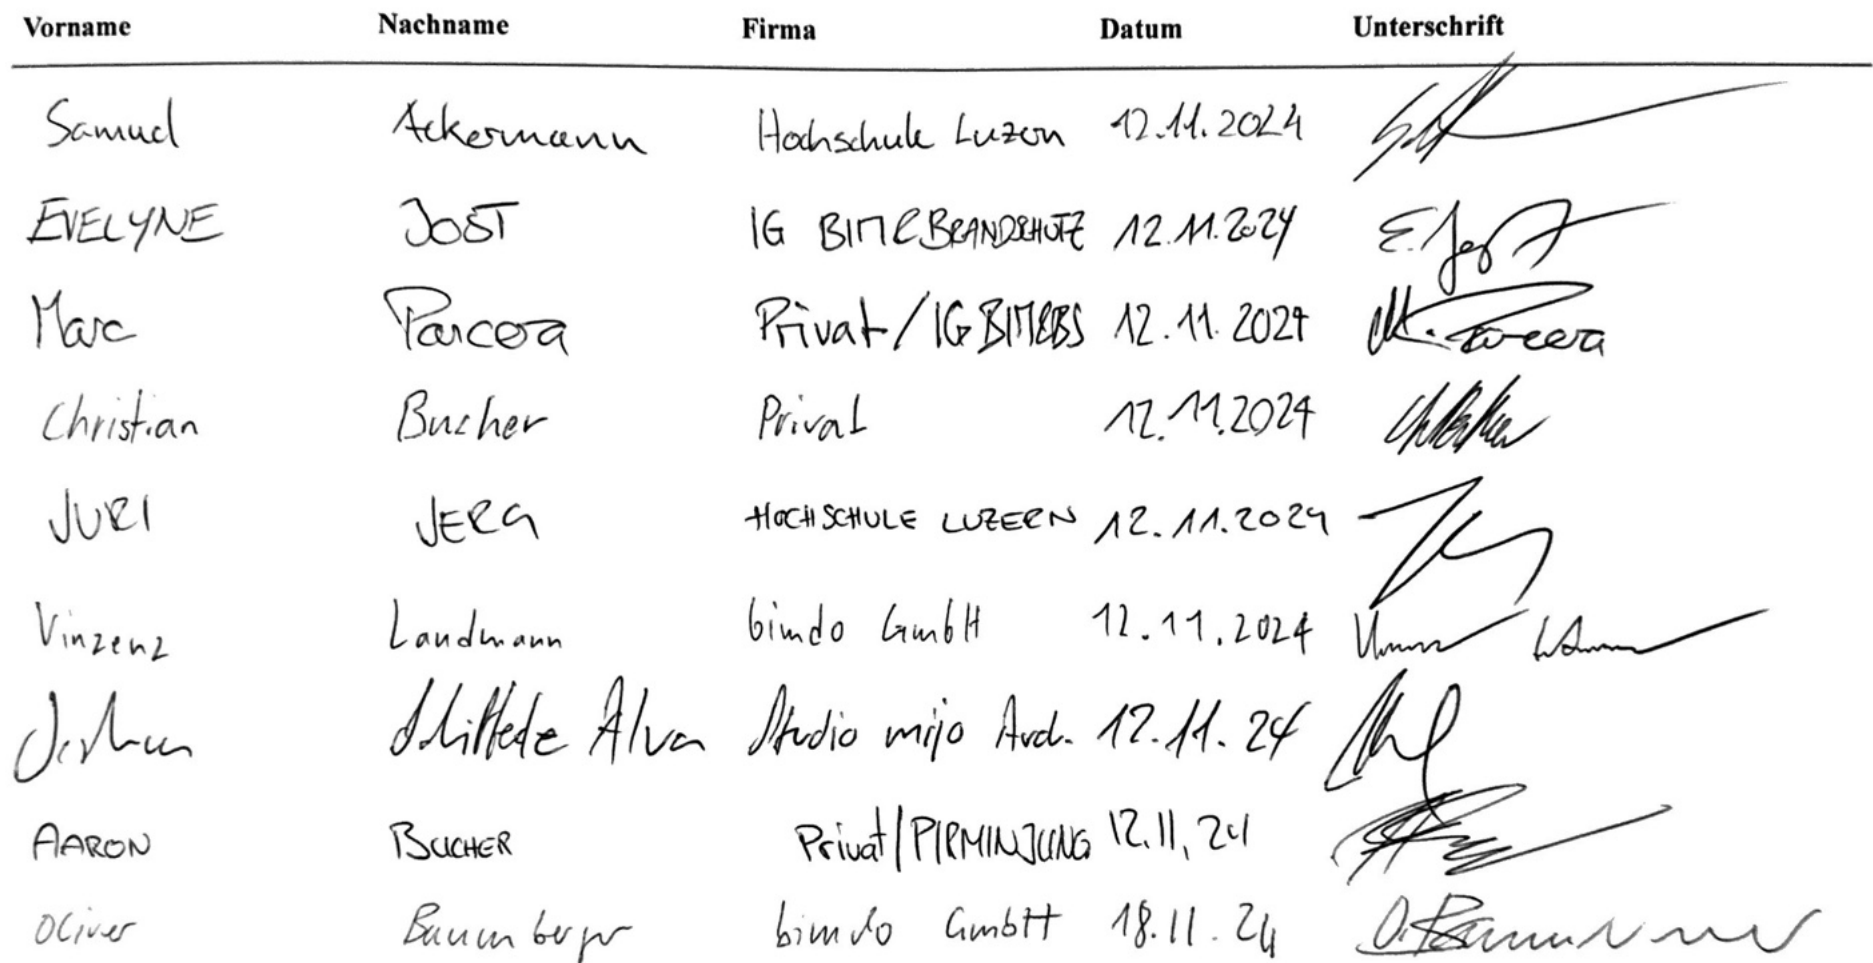 Vorname Nachname Firma Datum Unterschrift
Samuel Ackermann Hochschule Luzern 12.11.2024
EVELYNE JOST IG BIM&BRANDSCHUTZ 12.11.2024 E. Jost
Marc Parcera Privat/IG BIM&BS 12.11.2024 M. Parcera
Christian Bucher Privat 12.11.2024
JURI JERG HOCHSCHULE LUZERN 12.11.2024
Vinzenz Landmann bimdo GmbH 12.11.2024
Alva Studio mijo Arch. 12.11.24
AARON BUCHER Privat/PIRMINJUNG 12.11.24
Oliver Baumberger bimdo GmbH 18.11.24